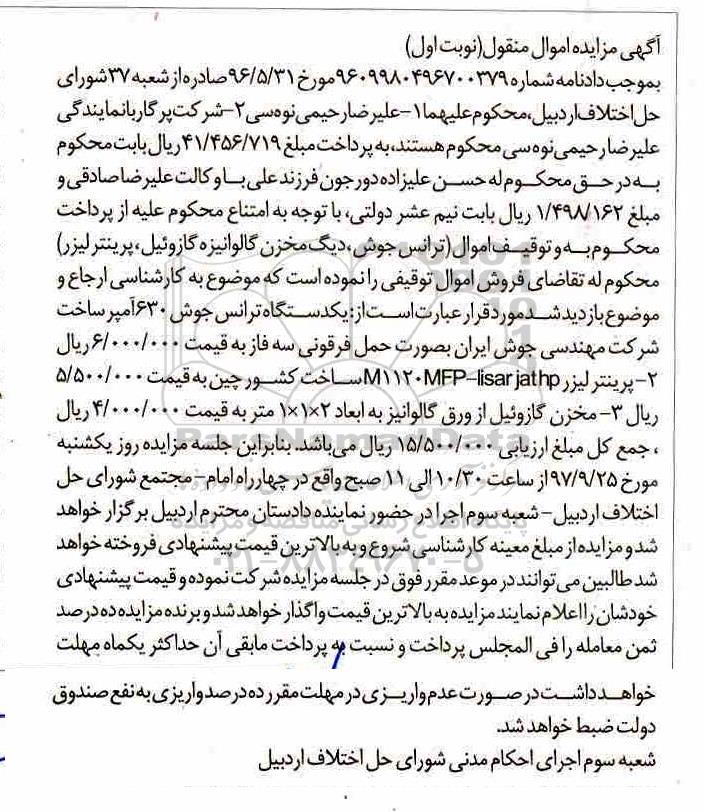 آگهی مزایده اموال منقول(نوبت اول)
بموجب دادنامه شماره ۹۶۰۹۹۸۰۴۹۶۷۰۰۳۷۹مورخ ۹۶/۵/۳۱صادره از شعبه ۳۷شورای
حل اختلاف اردبیل،محکوم علیهما۱-علیرضا رحیمی نوه سی۲-شرکت پرگار با نمایندگی
علیرضا رحیمی نوه سی محکوم هستند،به پرداخت مبلغ ۴۱/۴۵۶/۷۱۹ریال بابت محکوم
به در حق محکوم له حسن علیزاده دورجون فرزند علی با وکالت علیرضا صادقی و
مبلغ ۱/۴۹۸/۱۶۲ ریال بابت نیم عشر دولتی، با توجه به امتناع محکوم علیه از پرداخت
محکوم به و توقیف اموال(ترانس جوش ،دیگ مخزن گالوانیزه گازوئیل،پرینتر لیزر)
محکوم له تقاضای فروش اموال توقیفی را نموده است که موضوع به کارشناسی ارجاع و
موضوع بازدید شد مورد قرار عبارت است از: یکدستگاه ترانس جوش ۶۳۰آمپر ساخت
شرکت مهندسی جوش ایران بصورت حمل فرقونی سه فاز به قیمت ۶/۰۰۰/۰۰۰ریال
۲-پرینتر لیزر M۱۱۲۰MFP-lisar jathp ساخت کشور چین به قیمت ۵/۵۰۰/۰۰۰
ریال ۳- مخزن گازوئیل از ورق گالوانیز به ابعاد ۲×۱×۱ متر به قیمت ۴/۰۰۰/۰۰۰ ریال
، جمع کل مبلغ ارزیابی ۱۵/۵۰۰/۰۰۰ ریال می باشد. بنابراین جلسه مزایده روز یکشنبه
مورخ ۹۷/۹/۲۵از ساعت ۱۰/۳۰الی ۱۱ صبح واقع در چهارراه امام- مجتمع شورای حل
اختلاف اردبیل - شعبه سوم اجرا در حضور نماینده دادستان محترم اردبیل برگزار خواهد
شد و مزایده از مبلغ معینه کارشناسی شروع و به بالاترین قیمت پیشنهادی فروخته خواهد
شد طالبین می توانند در موعد مقرر فوق در جلسه مزایده شرکت نموده و قیمت پیشنهادی
خودشان را اعلام نمایند مزایده به بالاترین قیمت واگذار خواهد شد و برنده مزایده ده درصد
ثمن معامله را فی المجلس پرداخت و نسبت به پرداخت مابقی آن حداکثر یکماه مهلت
خواهد داشت در صورت عدم واریزی در مهلت مقرر ده درصد واریزی به نفع صندوق
دولت ضبط خواهد شد.
شعبه سوم اجرای احکام مدنی شورای حل اختلاف اردبیل